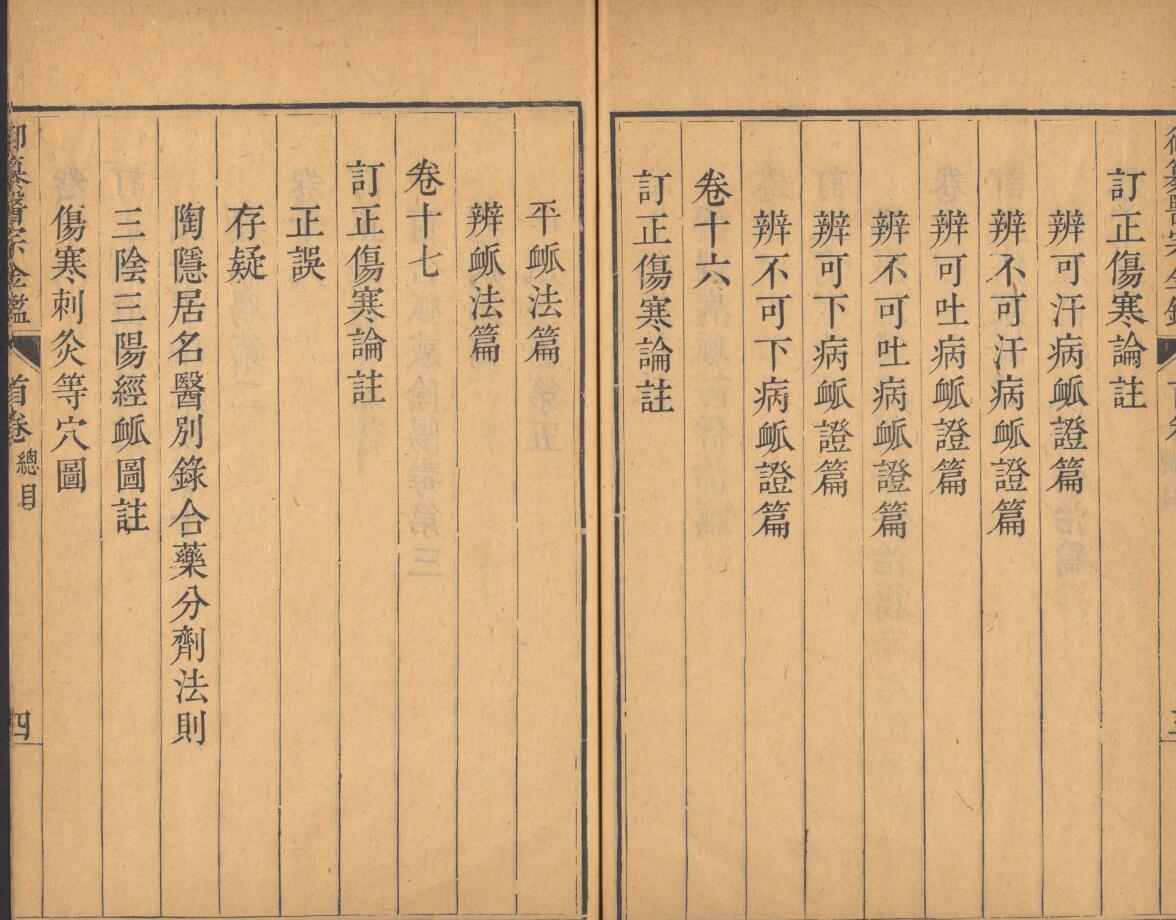 訂正傷寒論註
辨可汗病衇證篇
辨不可汗病衇證篇
辨可吐病衇證篇
辨不可吐病衇證篇
辨可下病衇證篇
辨不可下病衇證篇
卷十六
訂正傷寒論註
平衇法篇
辨衇法篇
卷十七
訂正傷寒論註
正誤
存疑
陶隱居名醫別錄合藥分劑法則
三陰三陽經衇圖註
傷寒刺灸等穴圖
御纂醫宗金鑑
首卷 總目
四